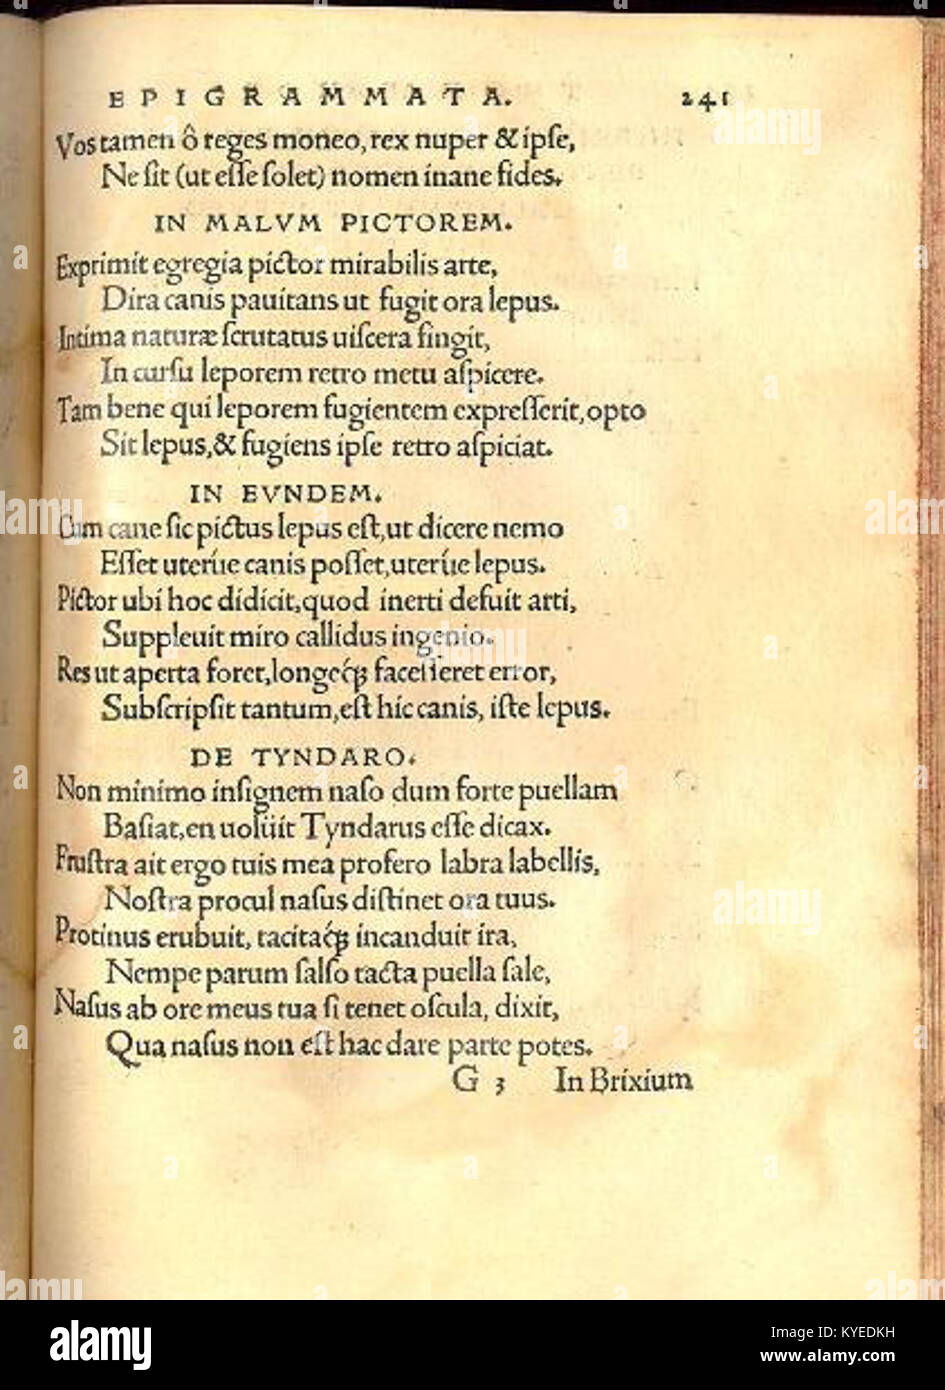 EPIGRAMMATA. 241
Vos tamen ô reges moneo, rex nuper & ipſe,
Ne ſit (ut eſſe ſolet) nomen inane fides.
IN MALVM PICTOREM.
Exprimit egregia pictor mirabilis arte,
Dira canis pauitans ut fugit ora lepus.
Intima naturæ ſcrutatus uiſcera fingit,
In curſu leporem retro metu aſpicere.
Tam bene qui leporem fugientem expreſſerit, opto
Sit lepus, & fugiens ipſe retro aſpiciat.
IN EVNDEM.
Cum cane ſic pictus lepus eſt, ut dicere nemo
Eſſet uterúe canis poſſet, uterúe lepus.
Pictor ubi hoc didicit, quod inerti defuit arti,
Suppleuit miro callidus ingenio.
Res ut aperta foret, longeq́; faceſſeret error,
Subſcripſit tantum, eſt hic canis, iſte lepus.
DE TYNDARO.
Non minimo inſignem naſo dum forte puellam
Baſiat, en uoluit Tyndarus eſſe dicax.
Fruſtra ait ergo tuis mea profero labra labellis,
Noſtra procul naſus diſtinet ora tuus.
Protinus erubuit, tacitaq́; incanduit ira,
Nempe parum ſalſo tacta puella ſale,
Naſus ab ore meus tua ſi tenet oſcula, dixit,
Qua naſus non eſt hac dare parte potes.
G 3 In Brixium
alamy
Image ID: KYEDKH
www.alamy.com